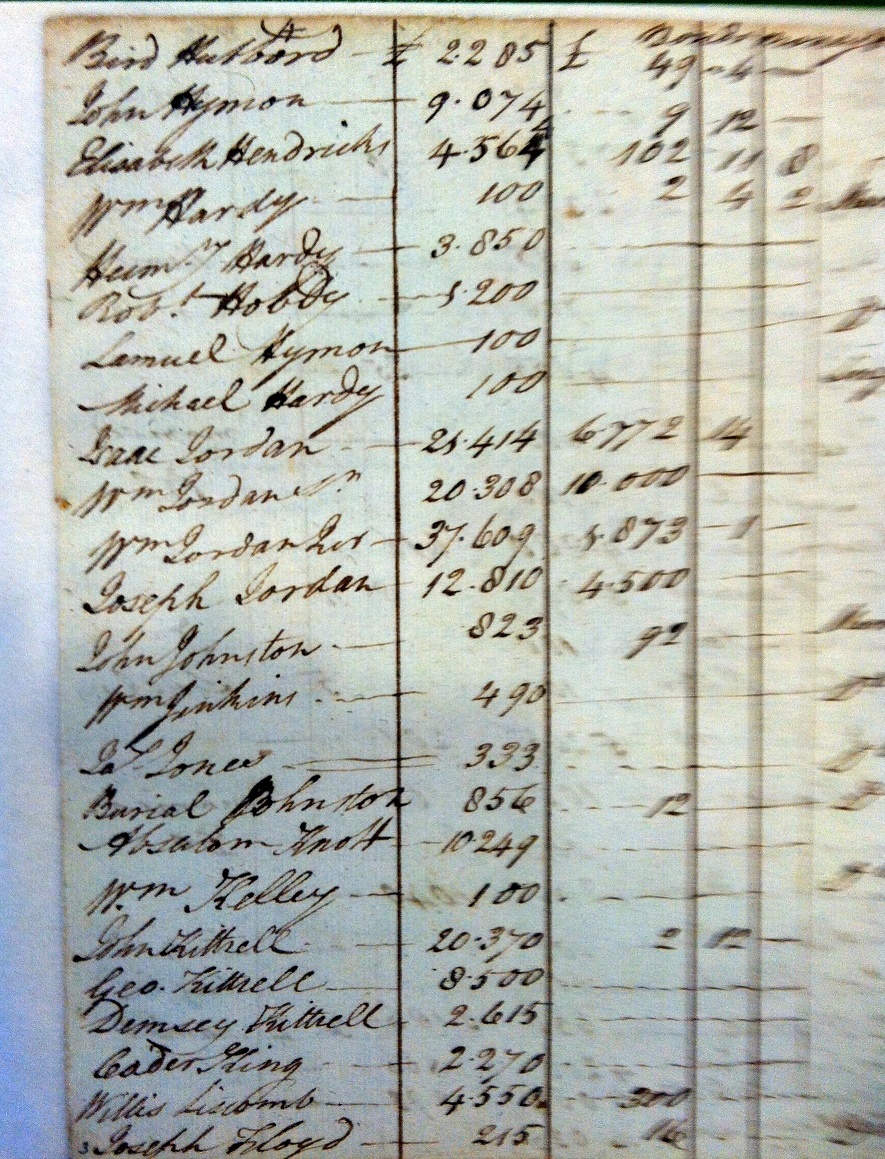 Bird Hubbard — £ 2.285 £ 49 - 4 —
John Hymon — 9.074 9 12 —
Elisabeth Hendricks 4.564 102 11 8
Wm Hardy 100 2 4 2
Hum. T Hardy — 3.850
Robt. Hobdy — 1.200
Lamuel Hymon 100
Michael Hardy 100
Isaac Jordan — 21.414 6772 14
Wm Jordan Sn 20.308 10.000 —
Wm Jordan Jur — 37.609 1.873 - 1 -
Joseph Jordan 12.810 4.500
John Johnston — 823 92
Wm Jinkins — 490
Jas Jones — 333
Burial Johnston 856 12
Absalom Knott 10249
Wm Kelley — 100
John Kittrell — 20.370 2 12 —
Geo. Kittrell — 8.500
Demsey Kittrell 2.615
Cader King 2.270
Willis Liscomb — 4.550 300
Joseph Lloyd — 215 16